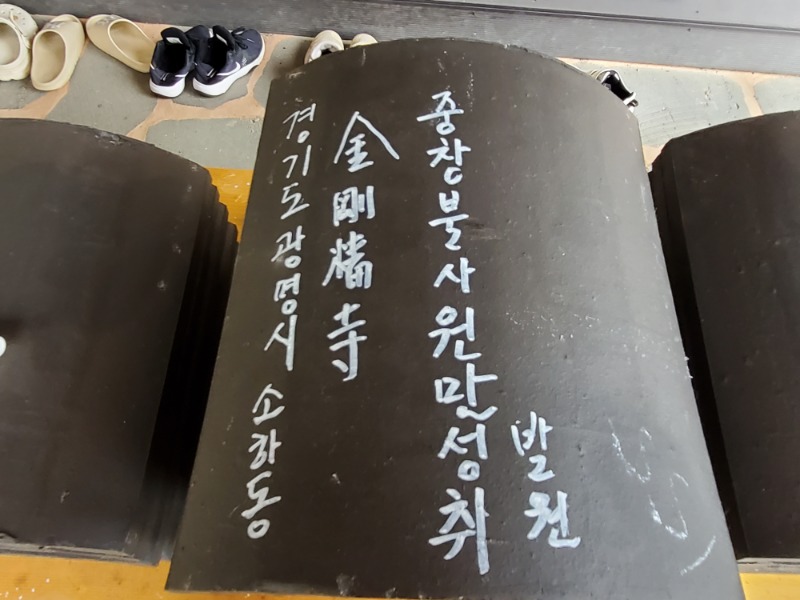 경기도 광명시 소하동
金剛 寺
중창불사 원만성취
발원